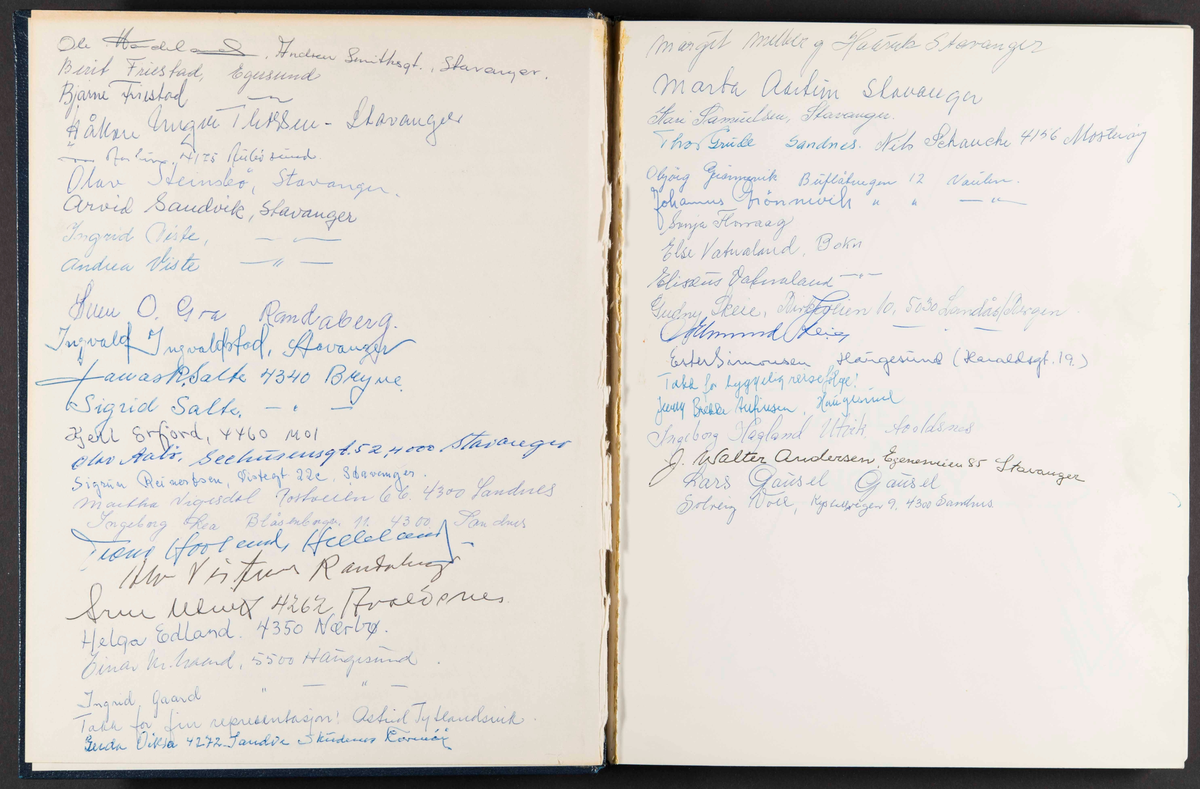 Ole Andreas Smithsgt., Stavanger.
Birit Friestad, Egersund
Bjarne Friestad
Håkon Yngve Thorsen - Stavanger
4175
Olav Steinsbø, Stavanger.
Arvid Sandvik, Stavanger
Ingrid Viste, — " —
Andrea Viste — " —
Sven O. Gra Randaberg.
Ingvald Ingvaldstad, Stavanger
Salte 4340 Bryne.
Sigrid Salte. — " —
Kjell Erfjord, 4460 MOI
Olav Aabø. Seehusensgt. 52, 4000 Stavanger
Sigrun Reinertsen, Vistegt 22c, Stavanger.
Martha Vigesdal 66. 4300 Sandnes
Ingeborg Skea Blåsenborg. 11. 4300 Sandnes
Helleland
Vistnes Randaberg
4262 Avaldsnes
Helga Edland. 4350 Nærbø.
Einar Kr. Gaard, 5500 Haugesund.
Ingrid Gaard " — " —
Takk for fin representasjon! Astrid Tytlandsvik.
Gerda Viksø 4272 Sandve Skudenes Karmøy
Margit Melberg Haarik Stavanger
Marta Austim Stavanger
Kari Samuelsen, Stavanger.
Thor Grude Sandnes. Nils Schanche 4156 Mosterøy
Grønnevik 12 Vaulen.
Johannes Grønnevik " " — " —
Sonja
Else Vatnaland, Bokn
Elisæus Vatnaland — " —
Gudny Skeie, 10, 5030 Landås/Bergen
Edmund Skeie — " —
Ester Simonsen Haugesund (Haraldsgt. 19.)
Takk for hyggelig reisefølge!
Jenny Haugesund
Ingeborg Hagland Utvik Avaldsnes
J. Walter Andersen, Egenesveien 55 Stavanger
Lars Gausel Gausel
Solveig Voll, 9, 4300 Sandnes